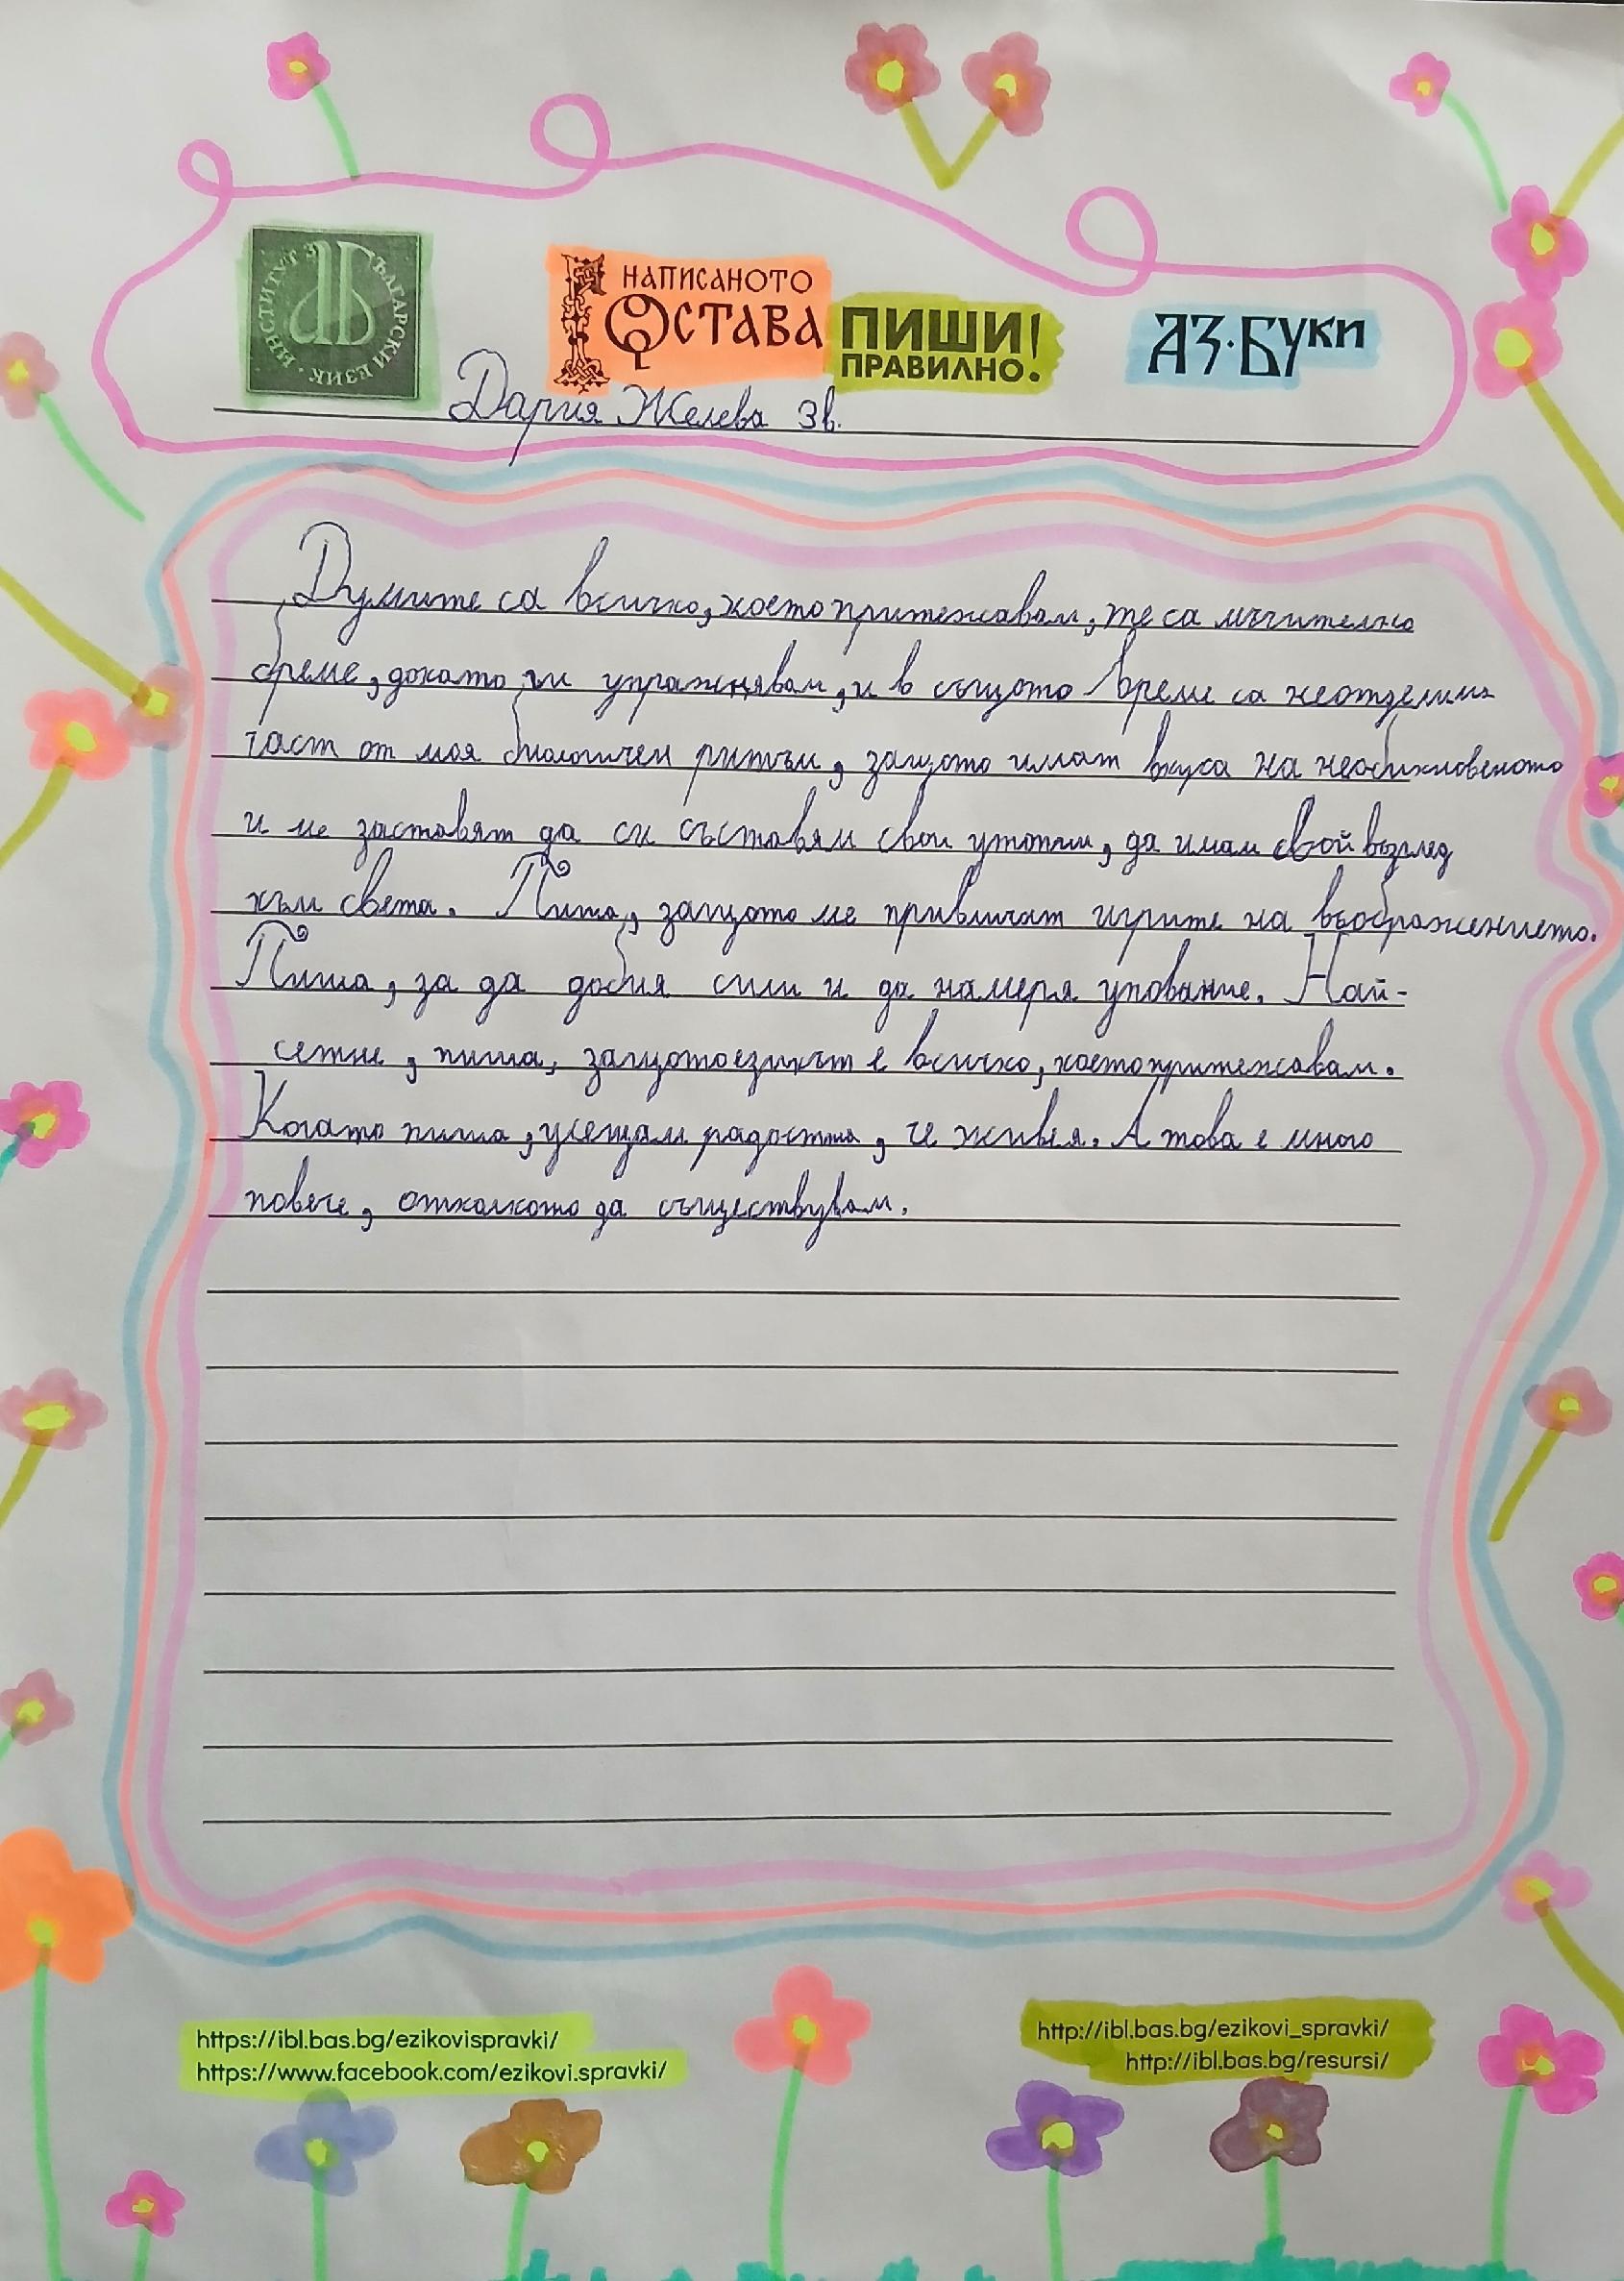 ИНСТИТУТ ЗА БЪЛГАРСКИ ЕЗИК
НАПИСАНОТО
ОСТАВА
ПИШИ!
ПРАВИЛНО!
АЗ·БУКИ
Дария Желева 3в.
Думите са всичко, което притежавам, те са мъчително
бреме, докато ги упражнявам, и в същото време са неотделима
част от моя биологичен ритъм, защото имат вкуса на необикновеното
и ме заставят да си съставям свои утопии, да имам свой възглед
към света. Пиша, защото ме привличат игрите на въображението.
Пиша, за да добия сили и да намеря упование. Най-
сетне, пиша, защото езикът е всичко, което притежавам.
Когато пиша, усещам радостта, че живея. А това е много
повече, отколкото да съществувам.
https://ibl.bas.bg/ezikovispravki/
https://www.facebook.com/ezikovi.spravki/
http://ibl.bas.bg/ezikovi_spravki/
http://ibl.bas.bg/resursi/